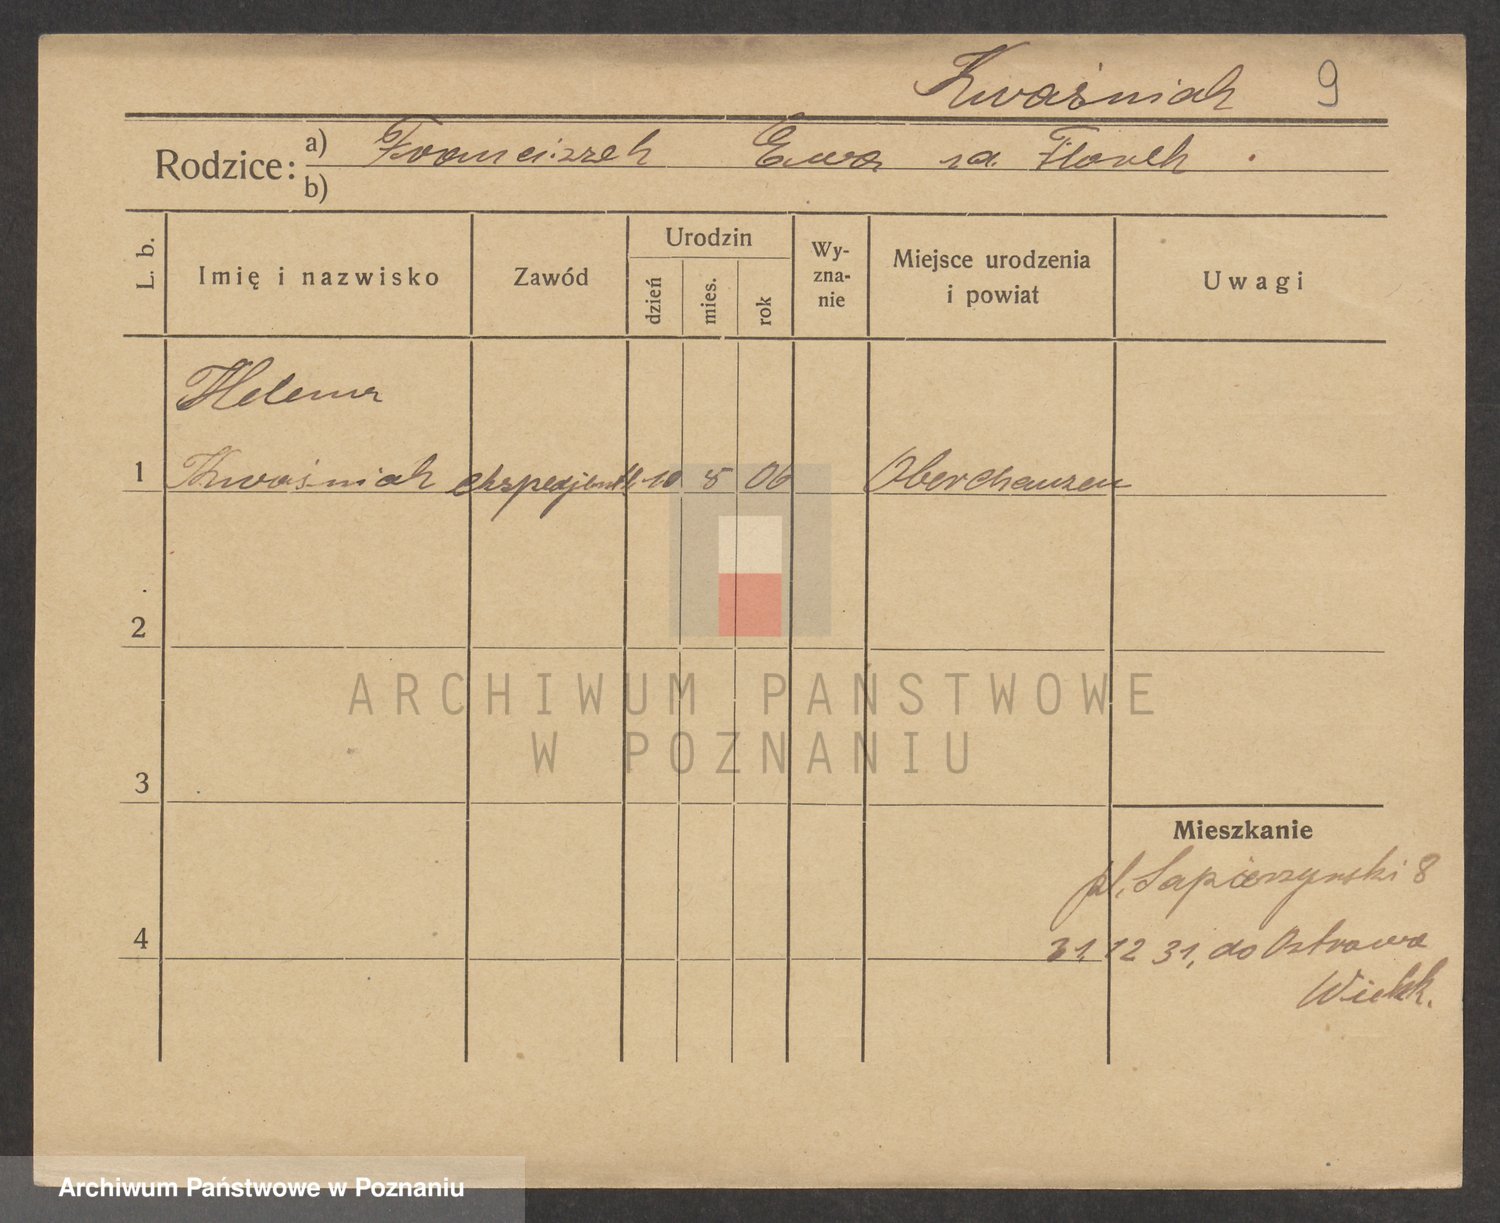 Kwaśniak 9
Rodzice: a) Franciszek Ewa zd. Florek.
b)
L. b.
Imię i nazwisko
Zawód
Urodzin
dzień
mies.
rok
Wy-
zna-
nie
Miejsce urodzenia
i powiat
Uwagi
Helena
1 Kwaśniak ekspedjentk 10 5 06 Oberchauzen
2
ARCHIWUM PAŃSTWOWE
W POZNANIU
3
Mieszkanie
pl. Sapierzynski 8
4
31, 12 31, do Ostrowa
Wielk.
Archiwum Państwowe w Poznaniu